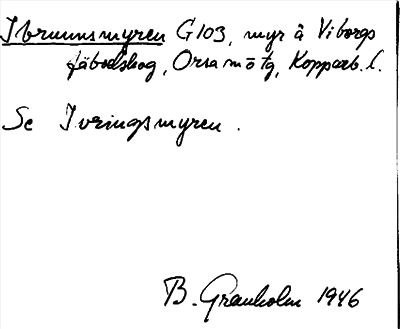 Ibrunnsmyren G103, myr å Viborgs
fäbodskog, Orsa mötg, Kopparb. l.
Se Ivringsmyren.
B. Granholm 1946